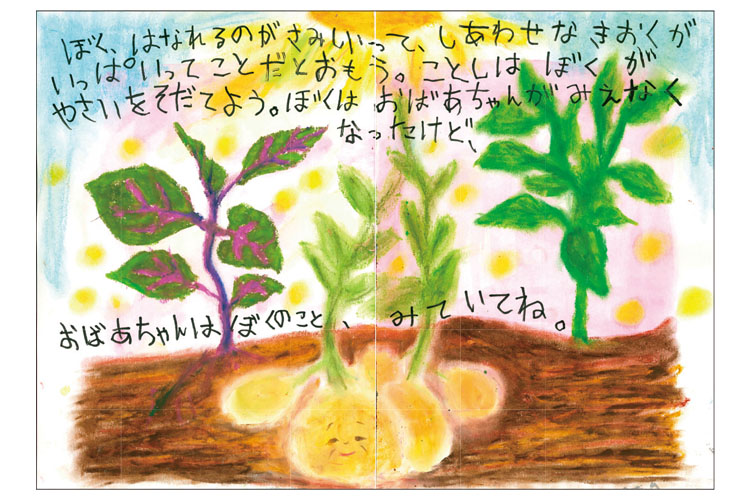 ぼく、はなれるのがさみしいって、しあわせなきおくが
いっぱいってことだとおもう。ことしは ぼくが
やさいをそだてよう。ぼくは おばあちゃんがみえなく
なったけど、
おばあちゃんはぼくのこと、みていてね。